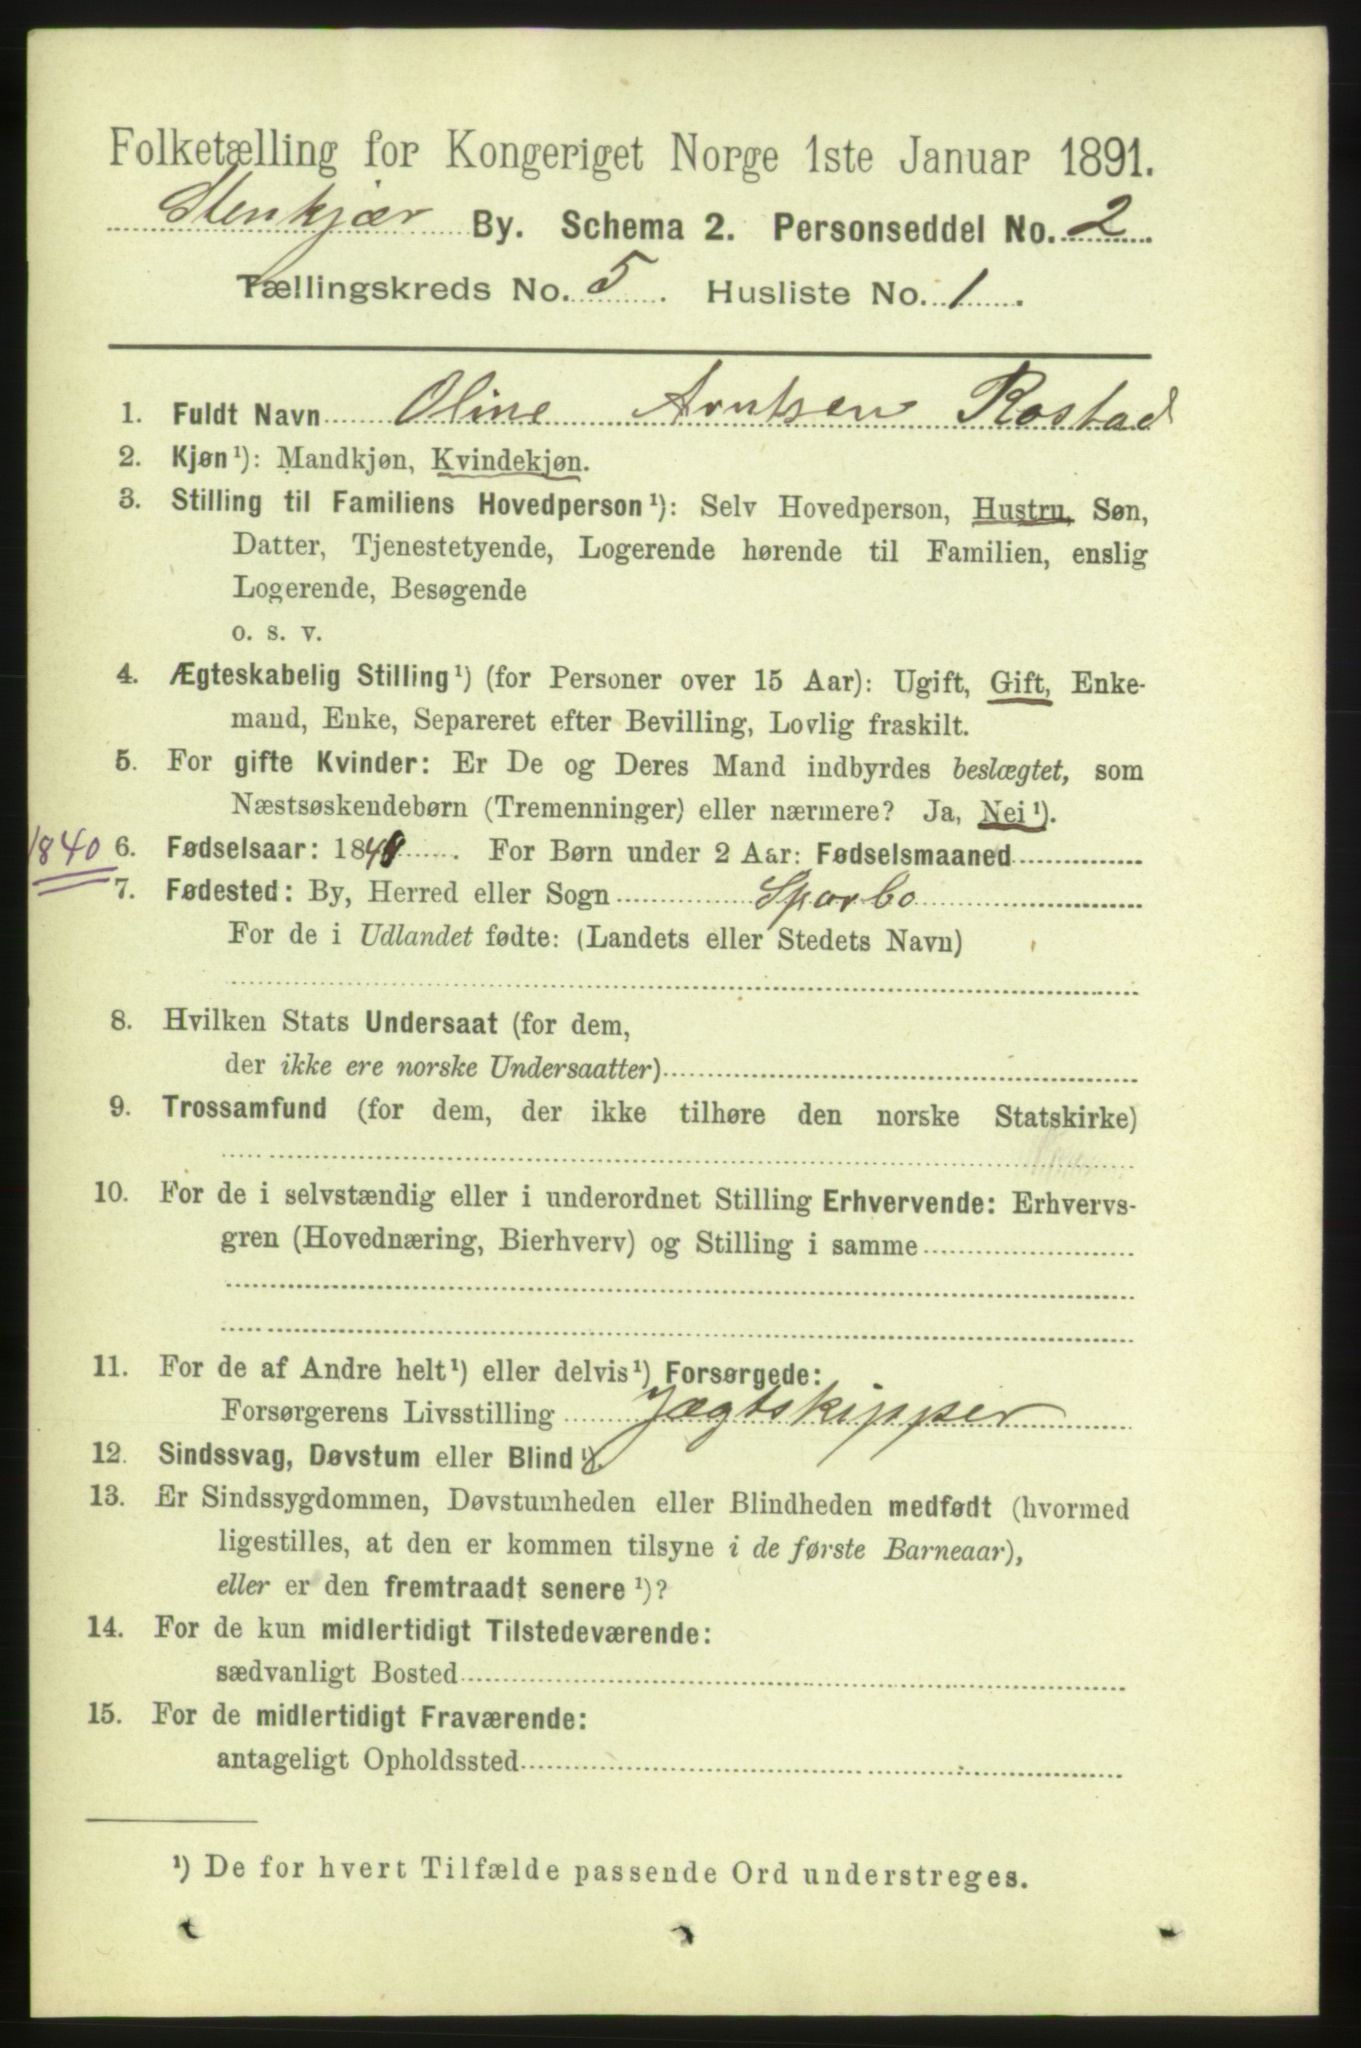 Folketælling for Kongeriget Norge 1ste Januar 1891.
Stenkjær By. Schema 2. Personseddel No. 2
Tællingskreds No. 5. Husliste No. 1.
1. Fuldt Navn Oline Arntsen Rostad
2. Kjøn¹): Mandkjøn, Kvindekjøn.
3. Stilling til Familiens Hovedperson¹): Selv Hovedperson, Hustru, Søn,
Datter, Tjenestetyende, Logerende hørende til Familien, enslig
Logerende, Besøgende
o. s. v.
4. Ægteskabelig Stilling¹) (for Personer over 15 Aar): Ugift, Gift, Enke-
mand, Enke, Separeret efter Bevilling, Lovlig fraskilt.
5. For gifte Kvinder: Er De og Deres Mand indbyrdes beslægtet, som
Næstsøskendebørn (Tremenninger) eller nærmere? Ja, Nei¹).
1840 6. Fødselsaar: 1840. For Børn under 2 Aar: Fødselsmaaned
7. Fødested: By, Herred eller Sogn Sparbo
For de i Udlandet fødte: (Landets eller Stedets Navn)
8. Hvilken Stats Undersaat (for dem,
der ikke ere norske Undersaatter)
9. Trossamfund (for dem, der ikke tilhøre den norske Statskirke)
10. For de i selvstændig eller i underordnet Stilling Erhvervende: Erhvervs-
gren (Hovednæring, Bierhverv) og Stilling i samme
11. For de af Andre helt¹) eller delvis¹) Forsørgede:
Forsørgerens Livsstilling Jægtskipper
12. Sindssvag, Døvstum eller Blind
13. Er Sindssygdommen, Døvstumheden eller Blindheden medfødt (hvormed
ligestilles, at den er kommen tilsyne i de første Barneaar),
eller er den fremtraadt senere¹)?
14. For de kun midlertidigt Tilstedeværende:
sædvanligt Bosted
15. For de midlertidigt Fraværende:
antageligt Opholdssted
¹) De for hvert Tilfælde passende Ord understreges.